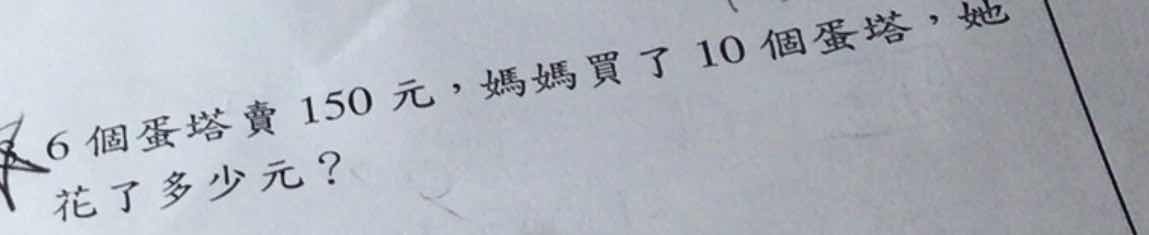 6 個蛋塔賣 150 元，媽媽買了 10 個蛋塔，她
花了多少元？